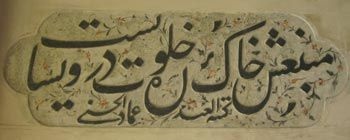 منبعش خاک در خلوت درویشانست
کتبه العبد
عماد الحسنی